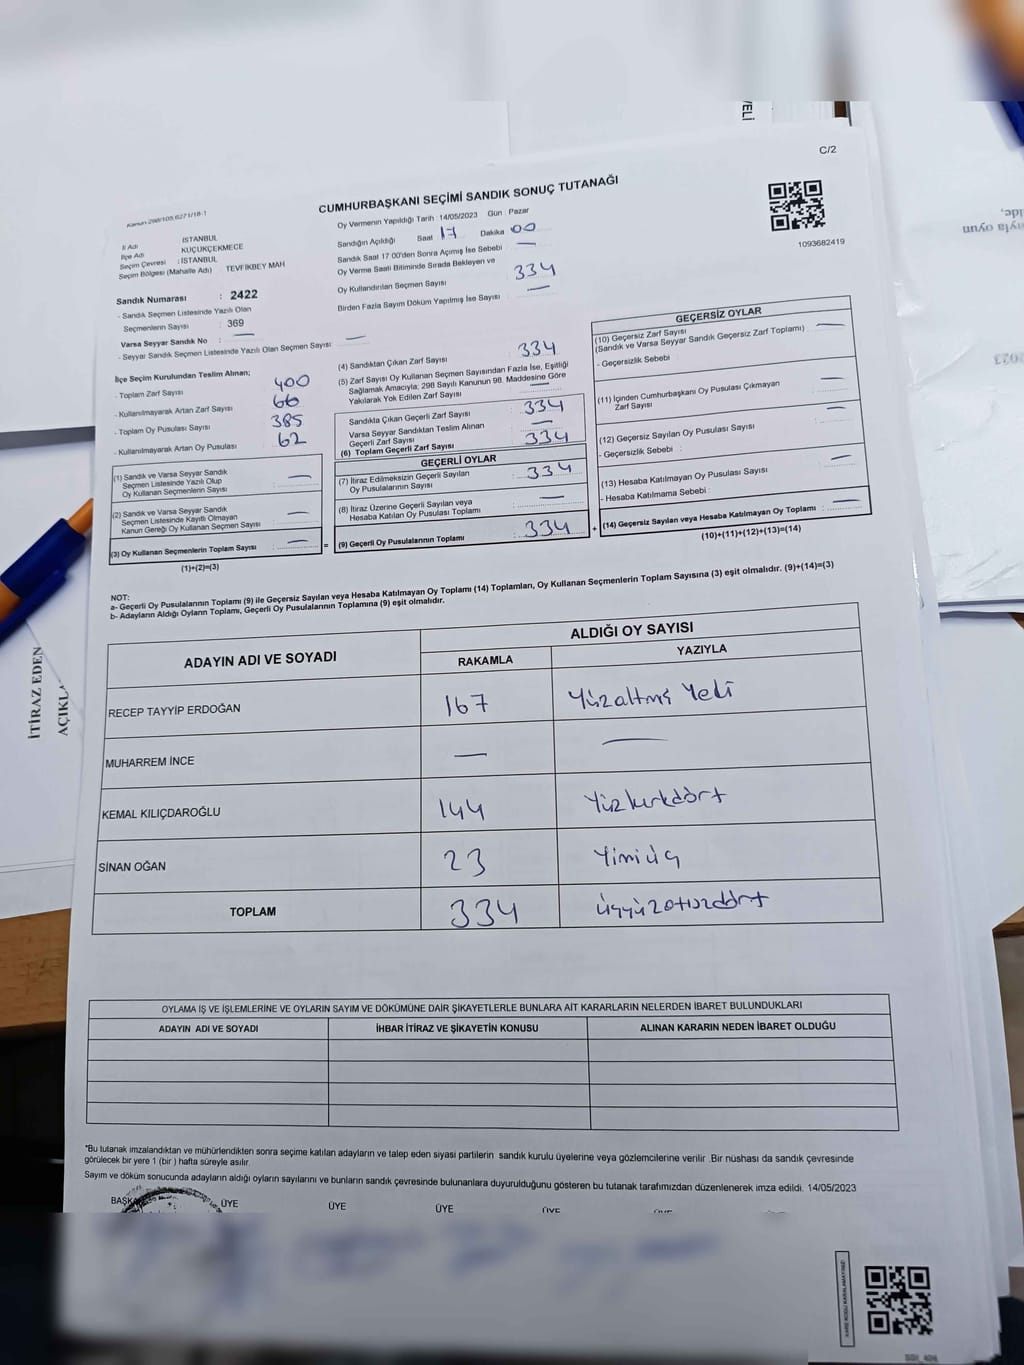 VELİ
C/2
Kanun-298/105,6271/18-1
CUMHURBAŞKANI SEÇİMİ SANDIK SONUÇ TUTANAĞI
1093682419
İl Adı İSTANBUL
İlçe Adı KÜÇÜKÇEKMECE
Seçim Çevresi : İSTANBUL
Seçim Bölgesi (Mahalle Adı) TEVFİKBEY MAH
Sandık Numarası : 2422
- Sandık Seçmen Listesinde Yazılı Olan
Seçmenlerin Sayısı : 369
Varsa Seyyar Sandık No : —
- Seyyar Sandık Seçmen Listesinde Yazılı Olan Seçmen Sayısı : —
Oy Vermenin Yapıldığı Tarih : 14/05/2023 Gün : Pazar
Sandığın Açıldığı Saat 17 Dakika 00
Sandık Saat 17:00'den Sonra Açımış İse Sebebi : —
Oy Verme Saati Bitiminde Sırada Bekleyen ve
Oy Kullandırılan Seçmen Sayısı : 334
Birden Fazla Sayım Döküm Yapılmış İse Sayısı : —
İlçe Seçim Kurulundan Teslim Alınan;
- Toplam Zarf Sayısı : 400
- Kullanılmayarak Artan Zarf Sayısı : 66
- Toplam Oy Pusulası Sayısı : 385
- Kullanılmayarak Artan Oy Pusulası : 62
(1) Sandık ve Varsa Seyyar Sandık
Seçmen Listesinde Yazılı Olup
Oy Kullanan Seçmenlerin Sayısı : —
(2) Sandık ve Varsa Seyyar Sandık
Seçmen Listesinde Kayıtlı Olmayan
Kanun Gereği Oy Kullanan Seçmen Sayısı : —
(3) Oy Kullanan Seçmenlerin Toplam Sayısı : — =
(1)+(2)=(3)
(4) Sandıktan Çıkan Zarf Sayısı : 334
(5) Zarf Sayısı Oy Kullanan Seçmen Sayısından Fazla İse, Eşitliği
Sağlamak Amacıyla; 298 Sayılı Kanunun 98. Maddesine Göre
Yakılarak Yok Edilen Zarf Sayısı : —
Sandıkta Çıkan Geçerli Zarf Sayısı : 334
Varsa Seyyar Sandıktan Teslim Alınan
Geçerli Zarf Sayısı : —
(6) Toplam Geçerli Zarf Sayısı : 334
GEÇERLİ OYLAR
(7) İtiraz Edilmeksizin Geçerli Sayılan
Oy Pusulalarının Sayısı : 334
(8) İtiraz Üzerine Geçerli Sayılan veya
Hesaba Katılan Oy Pusulası Toplamı : —
(9) Geçerli Oy Pusulalarının Toplamı : 334 +
GEÇERSİZ OYLAR
(10) Geçersiz Zarf Sayısı
(Sandık ve Varsa Seyyar Sandık Geçersiz Zarf Toplamı) : —
- Geçersizlik Sebebi :
(11) İçinden Cumhurbaşkanı Oy Pusulası Çıkmayan
Zarf Sayısı : —
(12) Geçersiz Sayılan Oy Pusulası Sayısı : —
- Geçersizlik Sebebi :
(13) Hesaba Katılmayan Oy Pusulası Sayısı : —
- Hesaba Katılmama Sebebi :
(14) Geçersiz Sayılan veya Hesaba Katılmayan Oy Toplamı : —
(10)+(11)+(12)+(13)=(14)
NOT:
a- Geçerli Oy Pusulalarının Toplamı (9) ile Geçersiz Sayılan veya Hesaba Katılmayan Oy Toplamı (14) Toplamları, Oy Kullanan Seçmenlerin Toplam Sayısına (3) eşit olmalıdır. (9)+(14)=(3)
b- Adayların Aldığı Oyların Toplamı, Geçerli Oy Pusulalarının Toplamına (9) eşit olmalıdır.
ADAYIN ADI VE SOYADI ALDIĞI OY SAYISI
RAKAMLA YAZIYLA
RECEP TAYYİP ERDOĞAN 167 Yüzaltmış Yedi
MUHARREM İNCE — —
KEMAL KILIÇDAROĞLU 144 Yüzkırkdört
SİNAN OĞAN 23 Yimiüç
TOPLAM 334 üçyüzotızdört
OYLAMA İŞ VE İŞLEMLERİNE VE OYLARIN SAYIM VE DÖKÜMÜNE DAİR ŞİKAYETLERLE BUNLARA AİT KARARLARIN NELERDEN İBARET BULUNDUKLARI
ADAYIN ADI VE SOYADI İHBAR İTİRAZ VE ŞİKAYETİN KONUSU ALINAN KARARIN NEDEN İBARET OLDUĞU
*Bu tutanak imzalandıktan ve mühürlendikten sonra seçime katılan adayların ve talep eden siyasi partilerin sandık kurulu üyelerine veya gözlemcilerine verilir .Bir nüshası da sandık çevresinde
görülecek bir yere 1 (bir ) hafta süreyle asılır.
Sayım ve döküm sonucunda adayların aldığı oyların sayılarını ve bunların sandık çevresinde bulunanlara duyurulduğunu gösteren bu tutanak tarafımızdan düzenlenerek imza edildi. 14/05/2023
BAŞKA ÜYE ÜYE ÜYE ÜYE
İTİRAZ EDEN
AÇIKLA